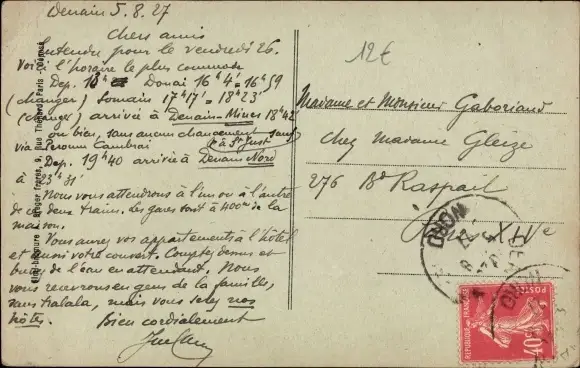 Denain 5.8.27
Chers amis
Entendu pour le vendredi 26.
Voici l'horaire le plus commode
Dep. 13h Douai 16h4' = 16h59
(changer) Somain 17h17' = 18h23'
(changer) arrivée à Denain-Mines 18h42
ou bien, sans aucun changement sauf
via Peronne Cambrai à St Just
Dep. 19h40 arrivée à Denain Nord
à 23h31'
Nous vous attendrons à l'un ou à l'autre
de ces deux trains. Les gares sont à 400m de la
maison.
Vous aurez vos appartements à l'hôtel
et aussi votre couvert. Comptez dessus et
buvez de l'eau en attendant. Nous
vous recevrons en gens de la famille,
sans tralala, mais vous serez nos
hôtes.
Bien cordialement
12€
Madame et Monsieur Gaboriaud
chez Madame Gleize
276 Bd Raspail
Paris XIVe
NORD
POSTES
REPUBLIQUE FRANÇAISE
40c
Héliogravure A. Breger Frères, 9, Rue Thénard, Paris